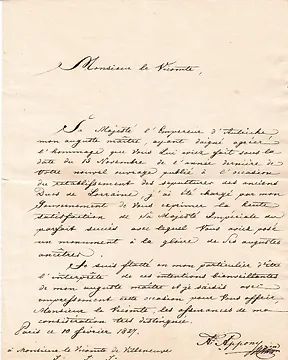 Monsieur le Vicomte,
Sa Majesté l'Empereur d'Autriche
mon auguste maître, ayant daigné agréer
l'hommage que vous lui avez fait sous la
date du 13 Novembre de l'année dernière de
votre nouvel ouvrage publié à l'occasion
du rétablissement des sépultures des anciens
Ducs de Lorraine, j'ai été chargé par mon
Gouvernement de vous exprimer la haute
satisfaction de Sa Majesté Impériale du
parfait succès avec lequel vous avez posé
un monument à la gloire de Ses augustes
ancêtres.
Je suis flatté en mon particulier d'être
l'interprète de ces intentions bienveillantes
de mon auguste maître et je saisis avec
empressement cette occasion pour vous offrir
Monsieur le Vicomte, les assurances de ma
considération très distinguée.
Paris ce 10 février 1827.
A. Appony
à Monsieur le Vicomte de Villeneuve